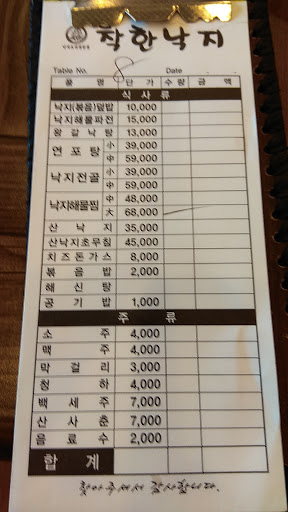 착한낙지
Table No. 8 Date
품 명 단 가 수 량 금 액
식 사 류
낙지(볶음)덮밥 10,000
낙지해물파전 15,000
왕갈낙탕 13,000
연포탕 小 39,000
中 59,000
낙지전골 小 39,000
中 59,000
낙지해물찜 中 48,000
大 68,000
산 낙 지 35,000
산낙지초무침 45,000
치즈돈가스 8,000
볶 음 밥 2,000
해 신 탕
공 기 밥 1,000
주 류
소 주 4,000
맥 주 4,000
막 걸 리 3,000
청 하 4,000
백 세 주 7,000
산 사 춘 7,000
음 료 수 2,000
합 계
찾아주셔서 감사합니다.